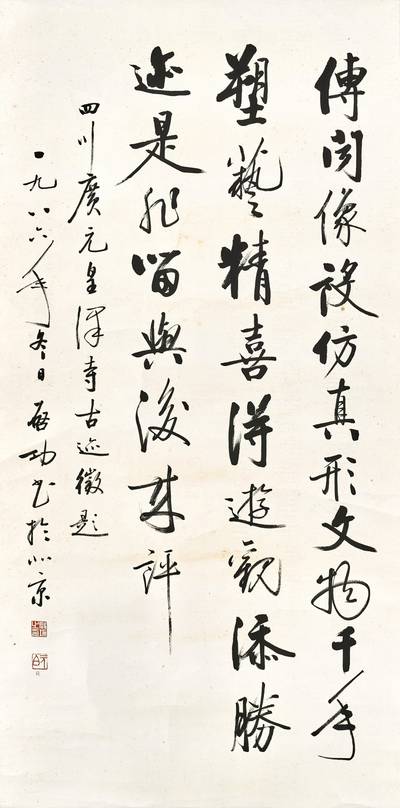 傳聞像設仿真形文物千年
塑藝精喜得遊觀添勝
迹是非留與後來評
四川廣元皇澤寺古迹徵題
一九八六年冬日啟功書於北京